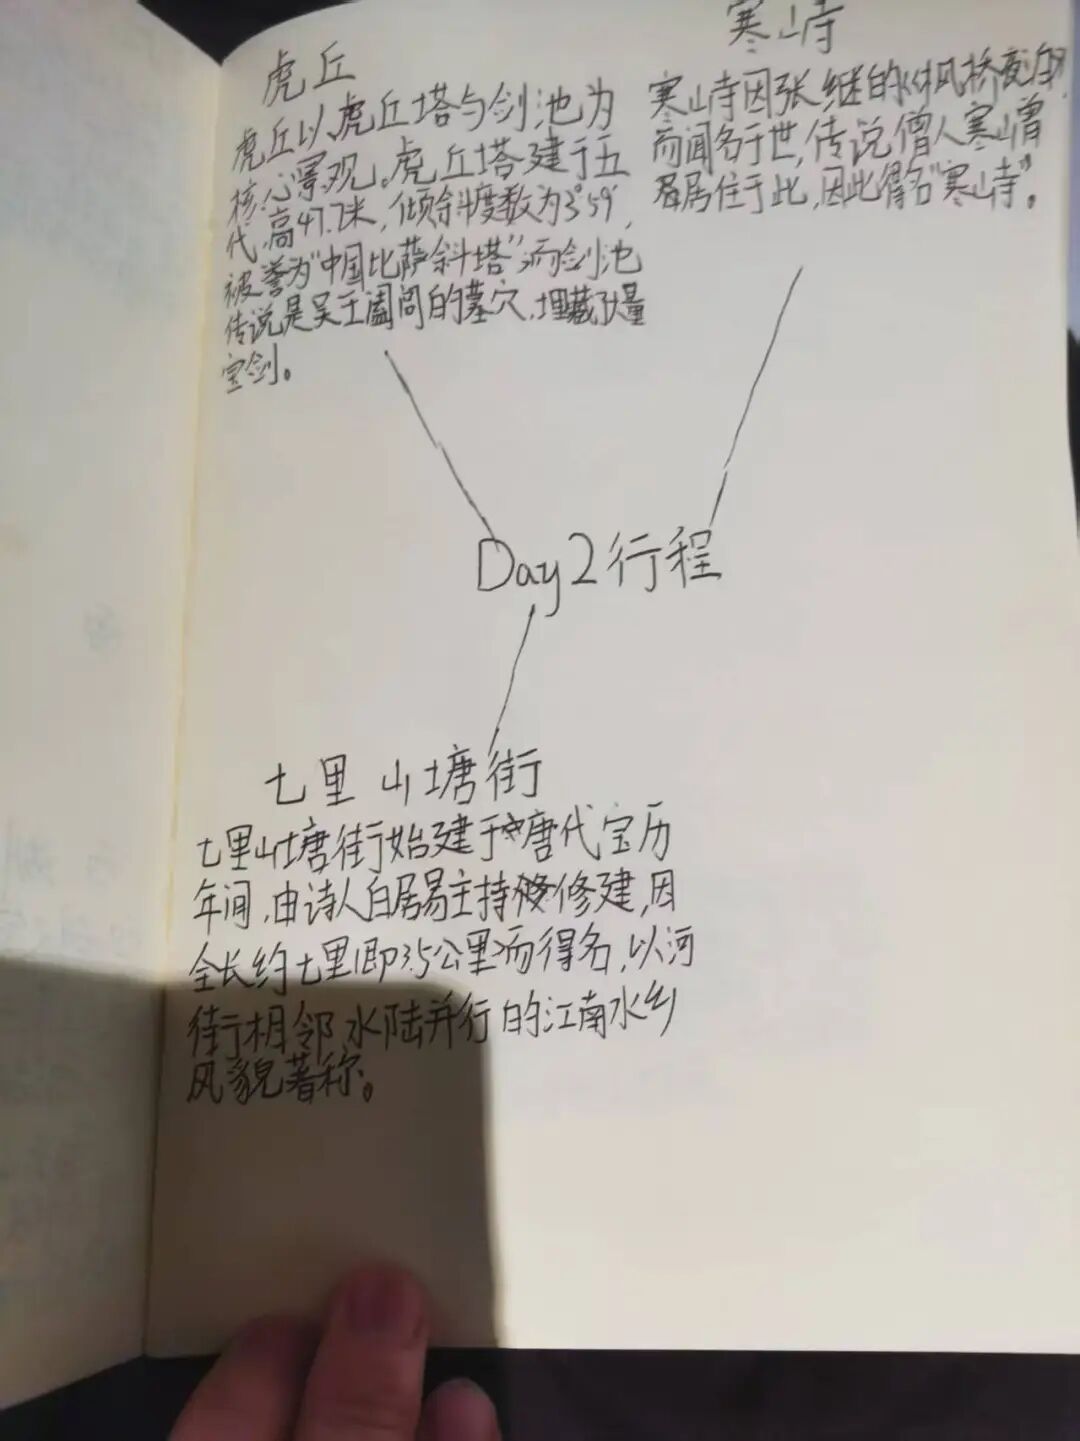 虎丘
虎丘以虎丘塔与剑池为
核心景观。虎丘塔建于五
代,高47.7米,倾斜度数为3°59′,
被誉为“中国比萨斜塔”,而剑池
传说是吴王阖闾的墓穴,埋藏大量
宝剑。
寒山寺
寒山寺因张继的《枫桥夜泊》
而闻名于世,传说僧人寒山曾
居住于此,因此得名“寒山寺”。
Day2行程
七里山塘街
七里山塘街始建于唐代宝历
年间,由诗人白居易主持修建,因
全长约七里(即3.5公里)而得名,以河
街相邻 水陆并行的江南水乡
风貌著称。